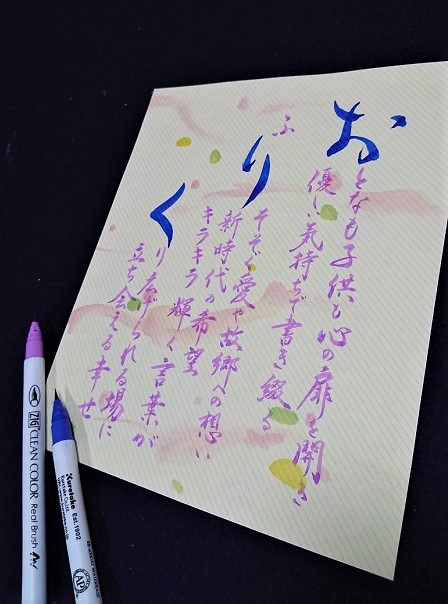 おとなも子供も心の扉を開き
優しい気持ちで書き綴る
ふりそそぐ愛や故郷への想い
新時代の希望
キラキラ 輝く言葉が
くり広げられる場に
立ち会える幸せ
ZIG CLEAN COLOR Real Brush
Kuretake Est.1902
AP